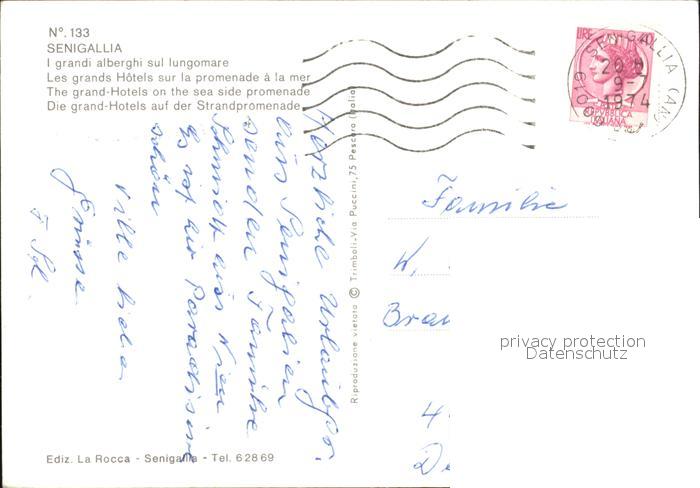 Nº. 133
SENIGALLIA
I grandi alberghi sul lungomare
Les grands Hôtels sur la promenade à la mer
The grand-Hotels on the sea side promenade
Die grand-Hotels auf der Strandpromenade
LIRE 40
SENIGALLIA (AN)
20
9-7
1974
REPUBBLICA
ITALIANA
Herzliche Urlaubgr.
aus Senigalien
senden Familie
Schmidt aus Wien
Es ist ein Paradisine
schön
Ville liebe
Grüsse
F.
Riproduzione vietata © Trimboli-Via Puccini,75 Pescara (Italia)
Familie
W.
Brau
4
De
privacy protection
Datenschutz
Ediz. La Rocca - Senigallia - Tel. 62869